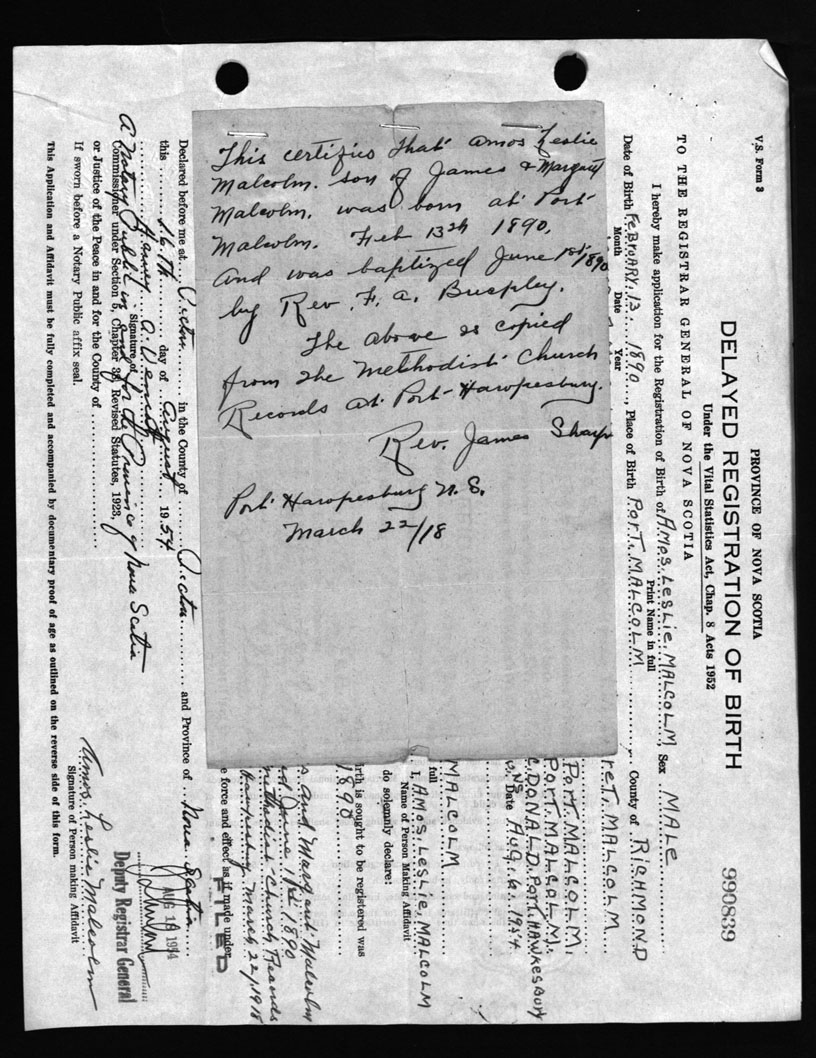 This certifies that Amos Leslie
Malcolm. son of James & Margaret
Malcolm. was born at Port
Malcolm. Feb 13th 1890.
And was baptized June 1st/1890
by Rev. F. A.
The above is copied
from the Methodist Church
Records at Port Hawkesbury.
Rev. James Sharp
Port Hawkesbury N. S.
March 22/18
V.S. Form 3
PROVINCE OF NOVA SCOTIA
DELAYED REGISTRATION OF BIRTH
990839
Under the Vital Statistics Act, Chap. 8 Acts 1952
TO THE REGISTRAR GENERAL OF NOVA SCOTIA
I hereby make application for the Registration of Birth of AMOS LESLIE MALCOLM Sex MALE
Print Name in full
Date of Birth FEBRUARY 13 1890, Place of Birth PORT MALCOLM, County of RICHMOND
Month Date Year
RET. MALCOLM
PORT. MALCOLM,
PORT. MALCOLM.
C. DONALD. PORT. HAWKESBURY
NS Date AUG. 6. 1954
MALCOLM
full
I, AMOS LESLIE MALCOLM
Name of Person Making Affidavit
do solemnly declare:
irth is sought to be registered was
1890
s and Margaret Malcolm
ed June 1st 1890
methodist Church Records
Hawkesbury March 22/1918
e force and effect as if made under
FILED
Declared before me at Pictou in the County of Pictou and Province of Nova Scotia
this 16th day of August 1954
Harvey A.
Signature of
A Notary Public in and for the Province of Nova Scotia
Commissioner under Section 5, Chapter 38, Revised Statutes, 1923,
or Justice of the Peace in and for the County of
If sworn before a Notary Public affix seal.
AUG 19 1954
Deputy Registrar General
Amos Leslie Malcolm
Signature of Person making Affidavit
This Application and Affidavit must be fully completed and accompanied by documentary proof of age as outlined on the reverse side of this form.